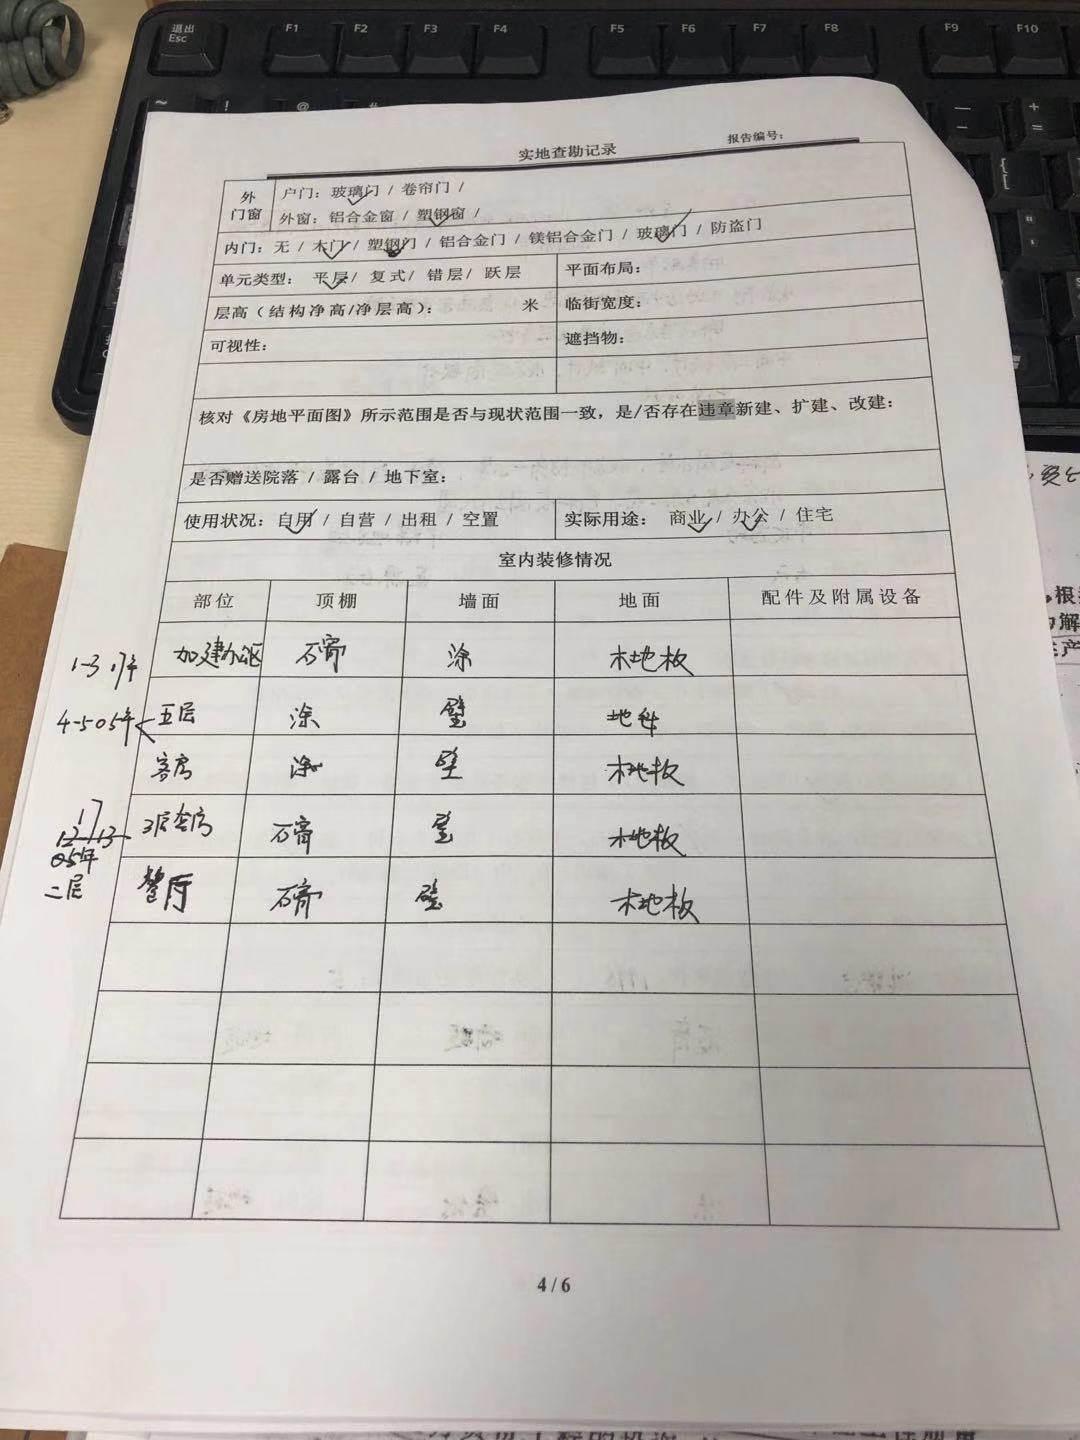 退出
Esc
F1
F2
F3
F4
F5
F6
F7
F8
F9
F10
实地查勘记录
报告编号：
外门窗
户门：玻璃门 / 卷帘门 /
外窗：铝合金窗 / 塑钢窗 /
内门：无 / 木门 / 塑钢门 / 铝合金门 / 镁铝合金门 / 玻璃门 / 防盗门
单元类型： 平层 / 复式 / 错层 / 跃层
平面布局：
层高（结构净高/净层高）： 米
临街宽度：
可视性：
遮挡物：
核对《房地平面图》所示范围是否与现状范围一致，是/否存在违章新建、扩建、改建：
是否赠送院落 / 露台 / 地下室：
使用状况：自用 / 自营 / 出租 / 空置
实际用途： 商业 / 办公 / 住宅
室内装修情况
部位 顶棚 墙面 地面 配件及附属设备
加建办公区 石膏 涂 木地板
4-5 05年 五层 涂 壁
客房 涂 壁 木地板
3层客房 石膏 壁 木地板
05年
二层 餐厅 石膏 壁 木地板
4 / 6